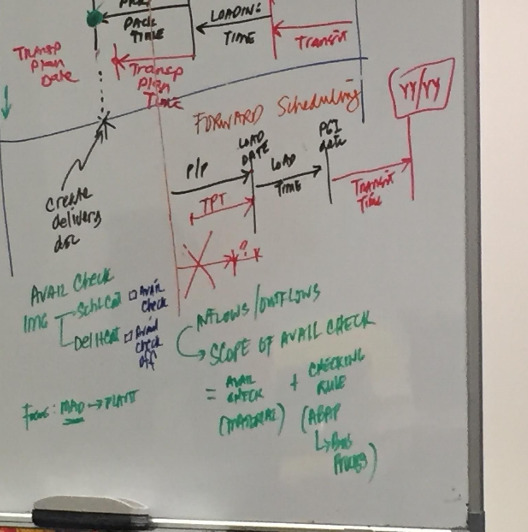 PACK
TIME
LOADING
TIME
Transit
TRANSP
Plan
Date
Transp
Plan
Time
FORWARD Scheduling
YY/YY
P/P
LOAD
DATE
LOAD
TIME
PGI
date
TRANSIT
TIME
TPT
create
delivery
doc
AVAIL CHECK
IMG
Schl Cat
□ Avail
check
Del It Cat
□ Avail
check
off
INFLOWS/OUTFLOWS
SCOPE OF AVAIL CHECK
= AVAIL
CHECK
(MATERIAL)
+ CHECKING
RULE
(ABAP
↳ Bus
Process)
Focus: MAD → PLANT